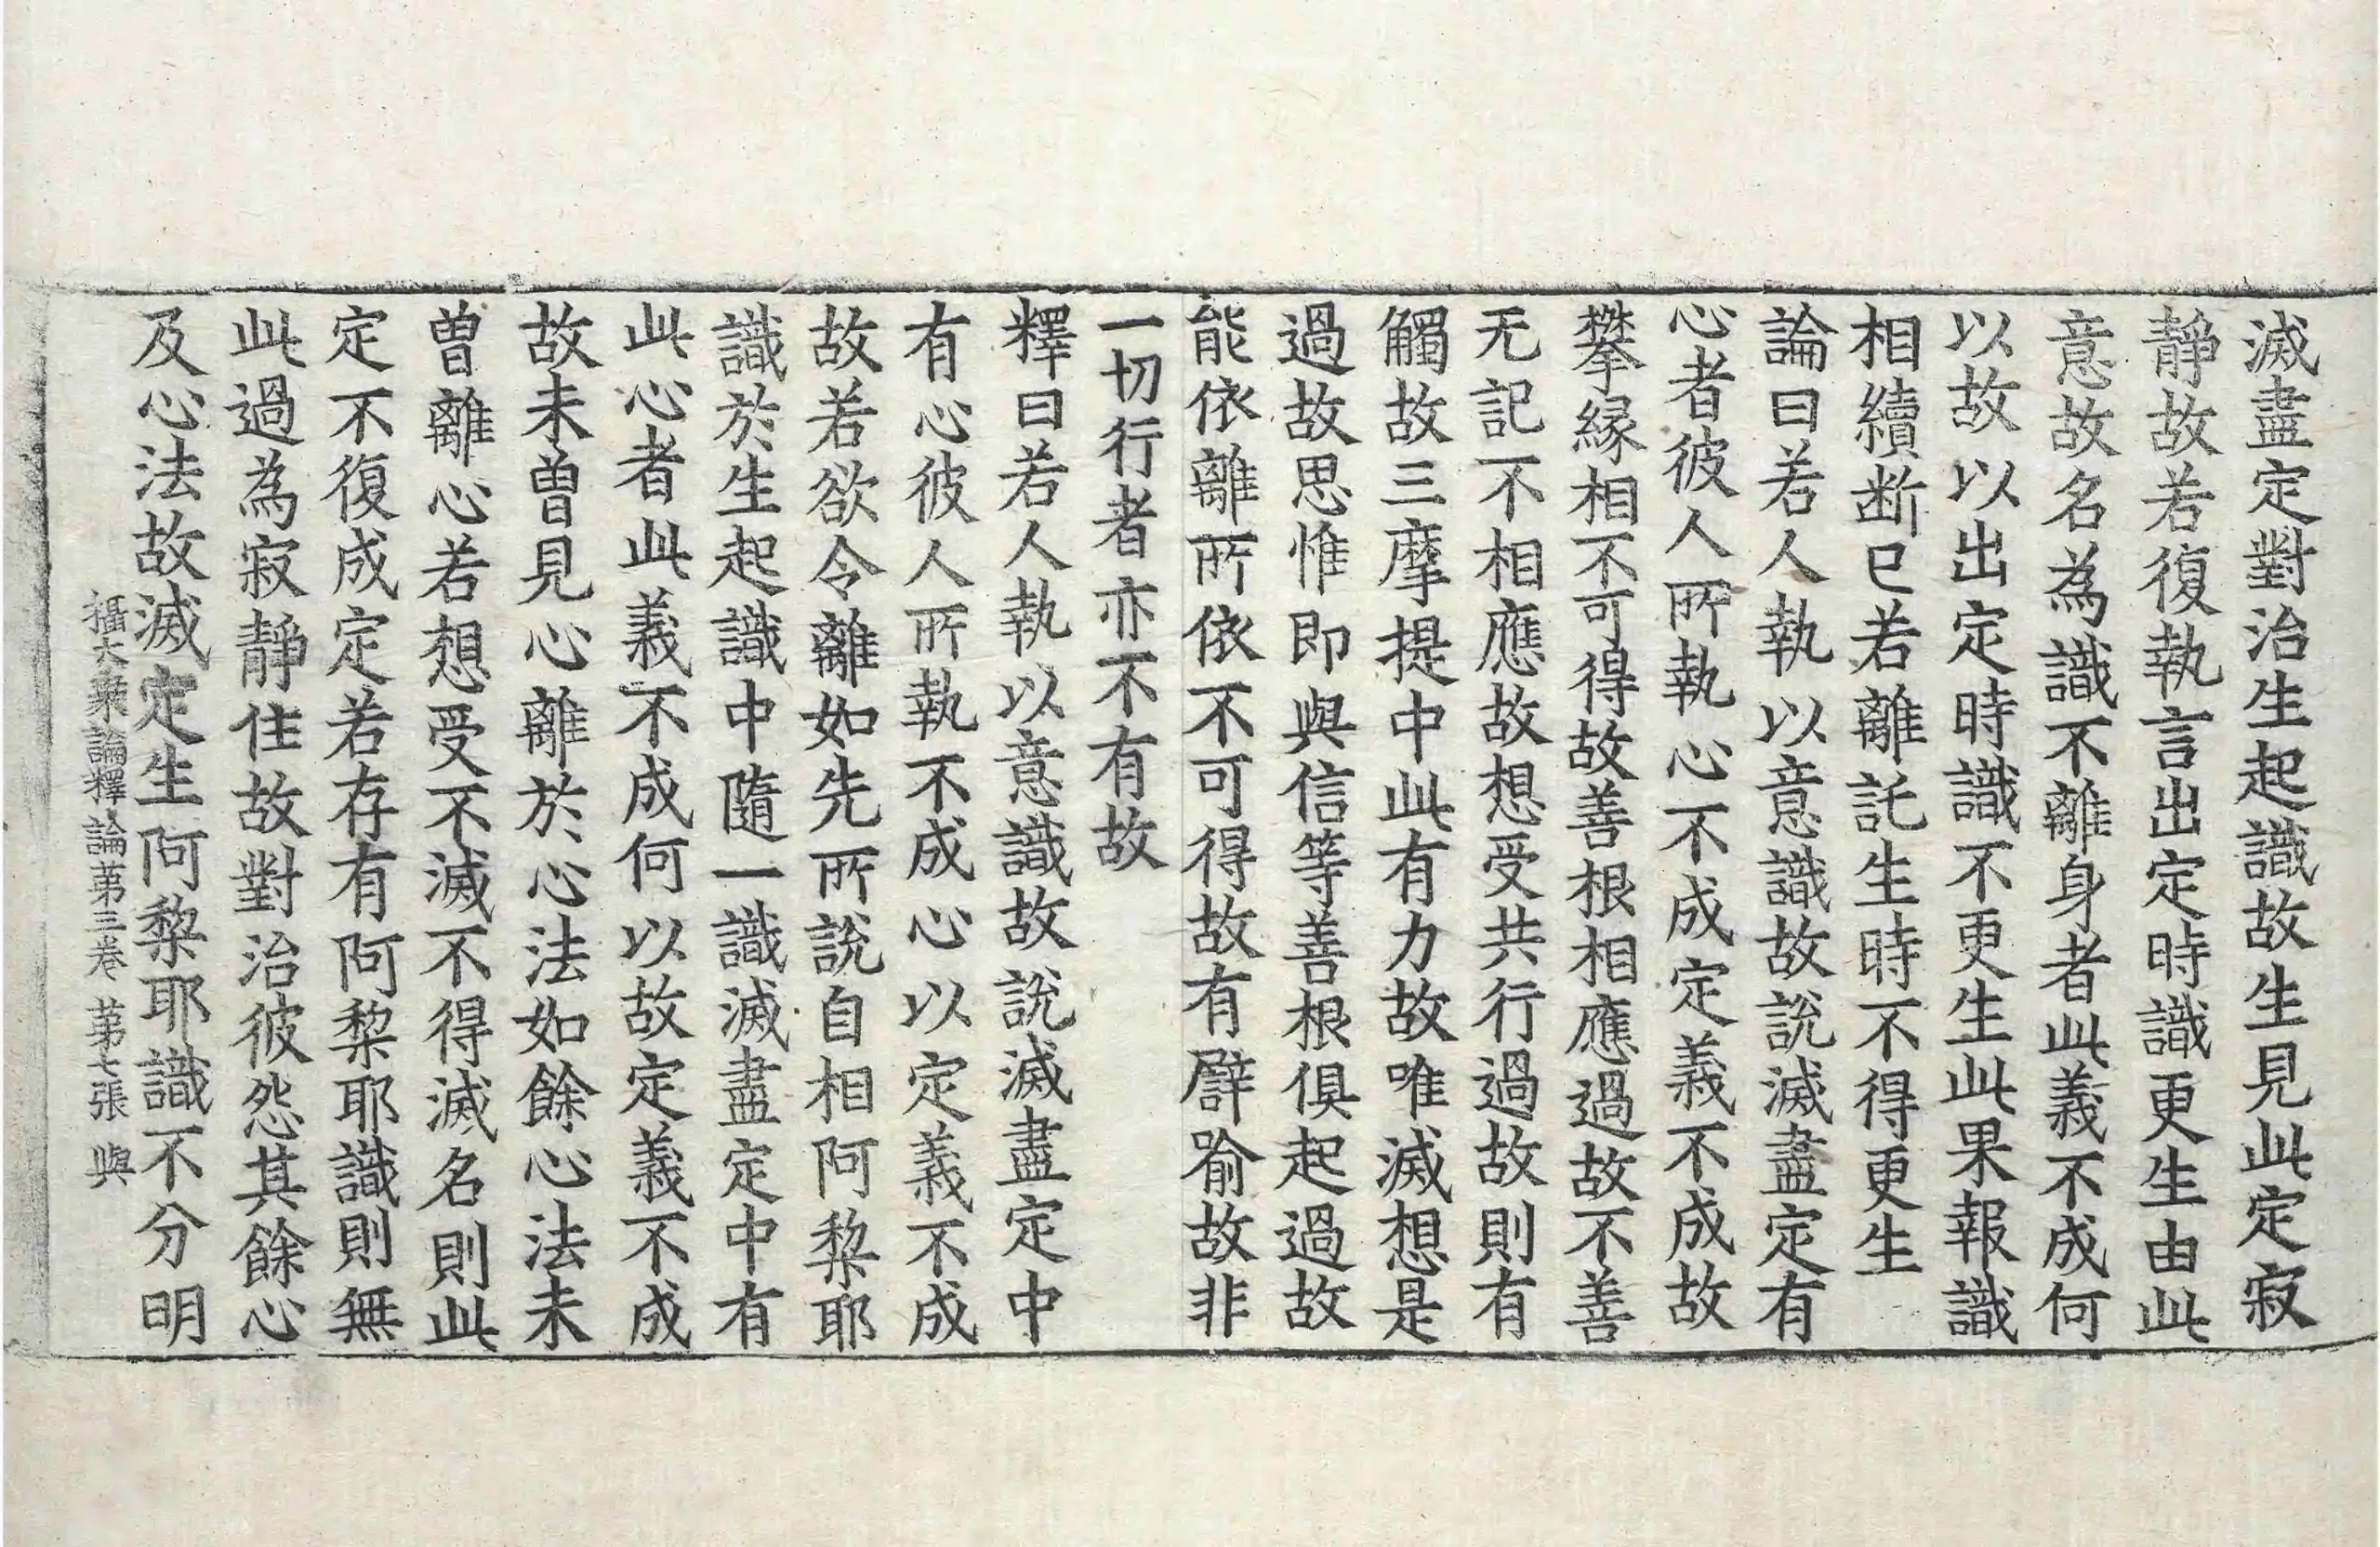 滅盡定對治生起識故生見此定寂
靜故若復執言出定時識更生由此
意故名為識不離身者此義不成何
以故以出定時識不更生此果報識
相續断已若離託生時不得更生
論曰若人執以意識故說滅盡定有
心者彼人所執心不成定義不成故
攀緣相不可得故善根相應過故不善
无記不相應故想受共行過故則有
觸故三摩提中此有力故唯滅想是
過故思惟即與信等善根俱起過故
能依離所依不可得故有譬喻故非
一切行者亦不有故
釋曰若人執以意識故說滅盡定中
有心彼人所執不成心以定義不成
故若欲令離如先所說自相阿黎耶
識於生起識中隨一識滅盡定中有
此心者此義不成何以故定義不成
故未曾見心離於心法如餘心法未
曾離心若想受不滅不得滅名則此
定不復成定若存有阿黎耶識則無
此過為寂靜住故對治彼怨其餘心
及心法故滅定生阿黎耶識不分明
攝大乘論釋論第三卷 第七張 與